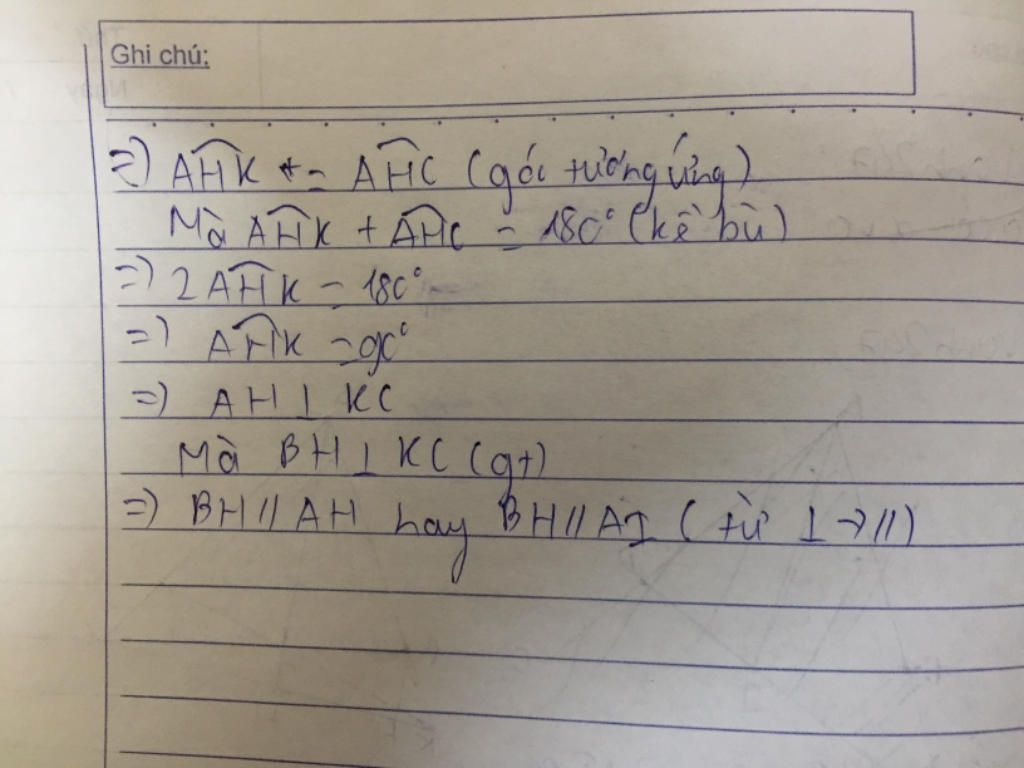 Ghi chú:
=) AHK = AHC (góc tương ứng)
Mà AHK + AHC = 180° (kề bù)
=) 2AHK = 180°
=) AHK = 90°
=) AH ⊥ KC
Mà BH ⊥ KC (gt)
=) BH // AH hay BH // AI (từ ⊥ → //)